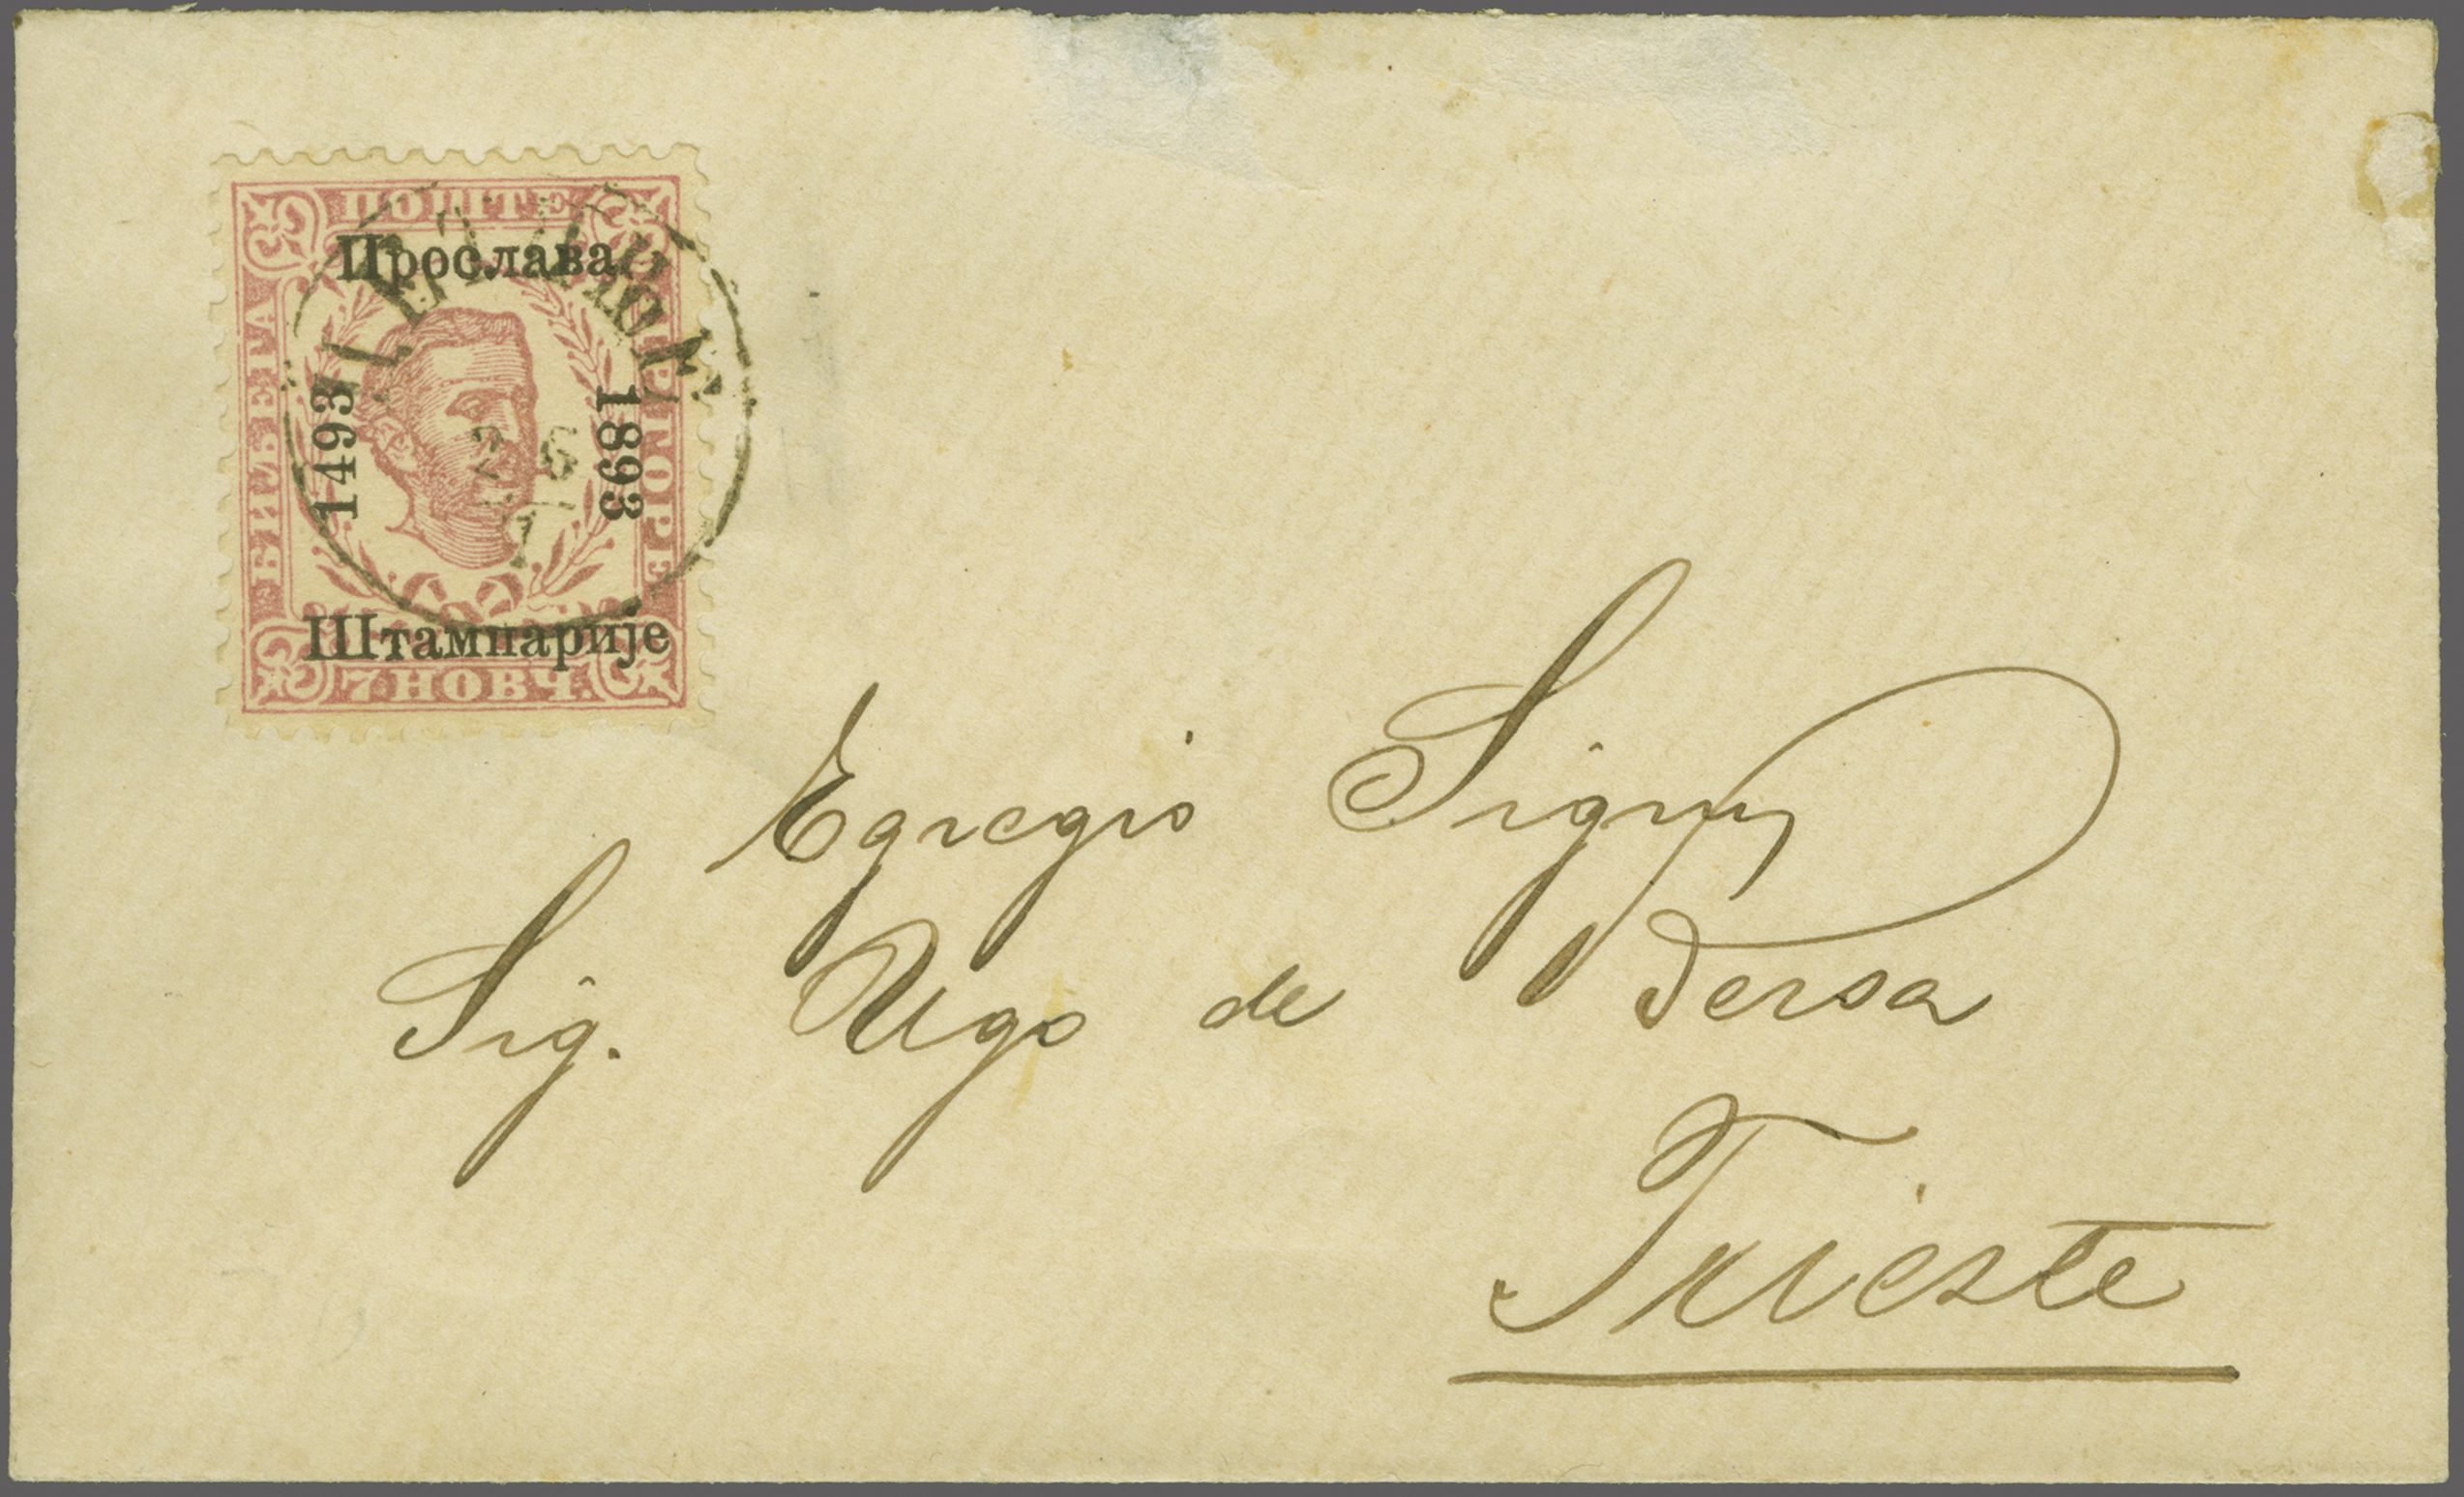 ПОШТЕ
Прослава
БИЉЕГА
1493
1893
Штампарије
7 НОВЧ.
Egregio Signor
Sig. Ugo de Persa
Trieste